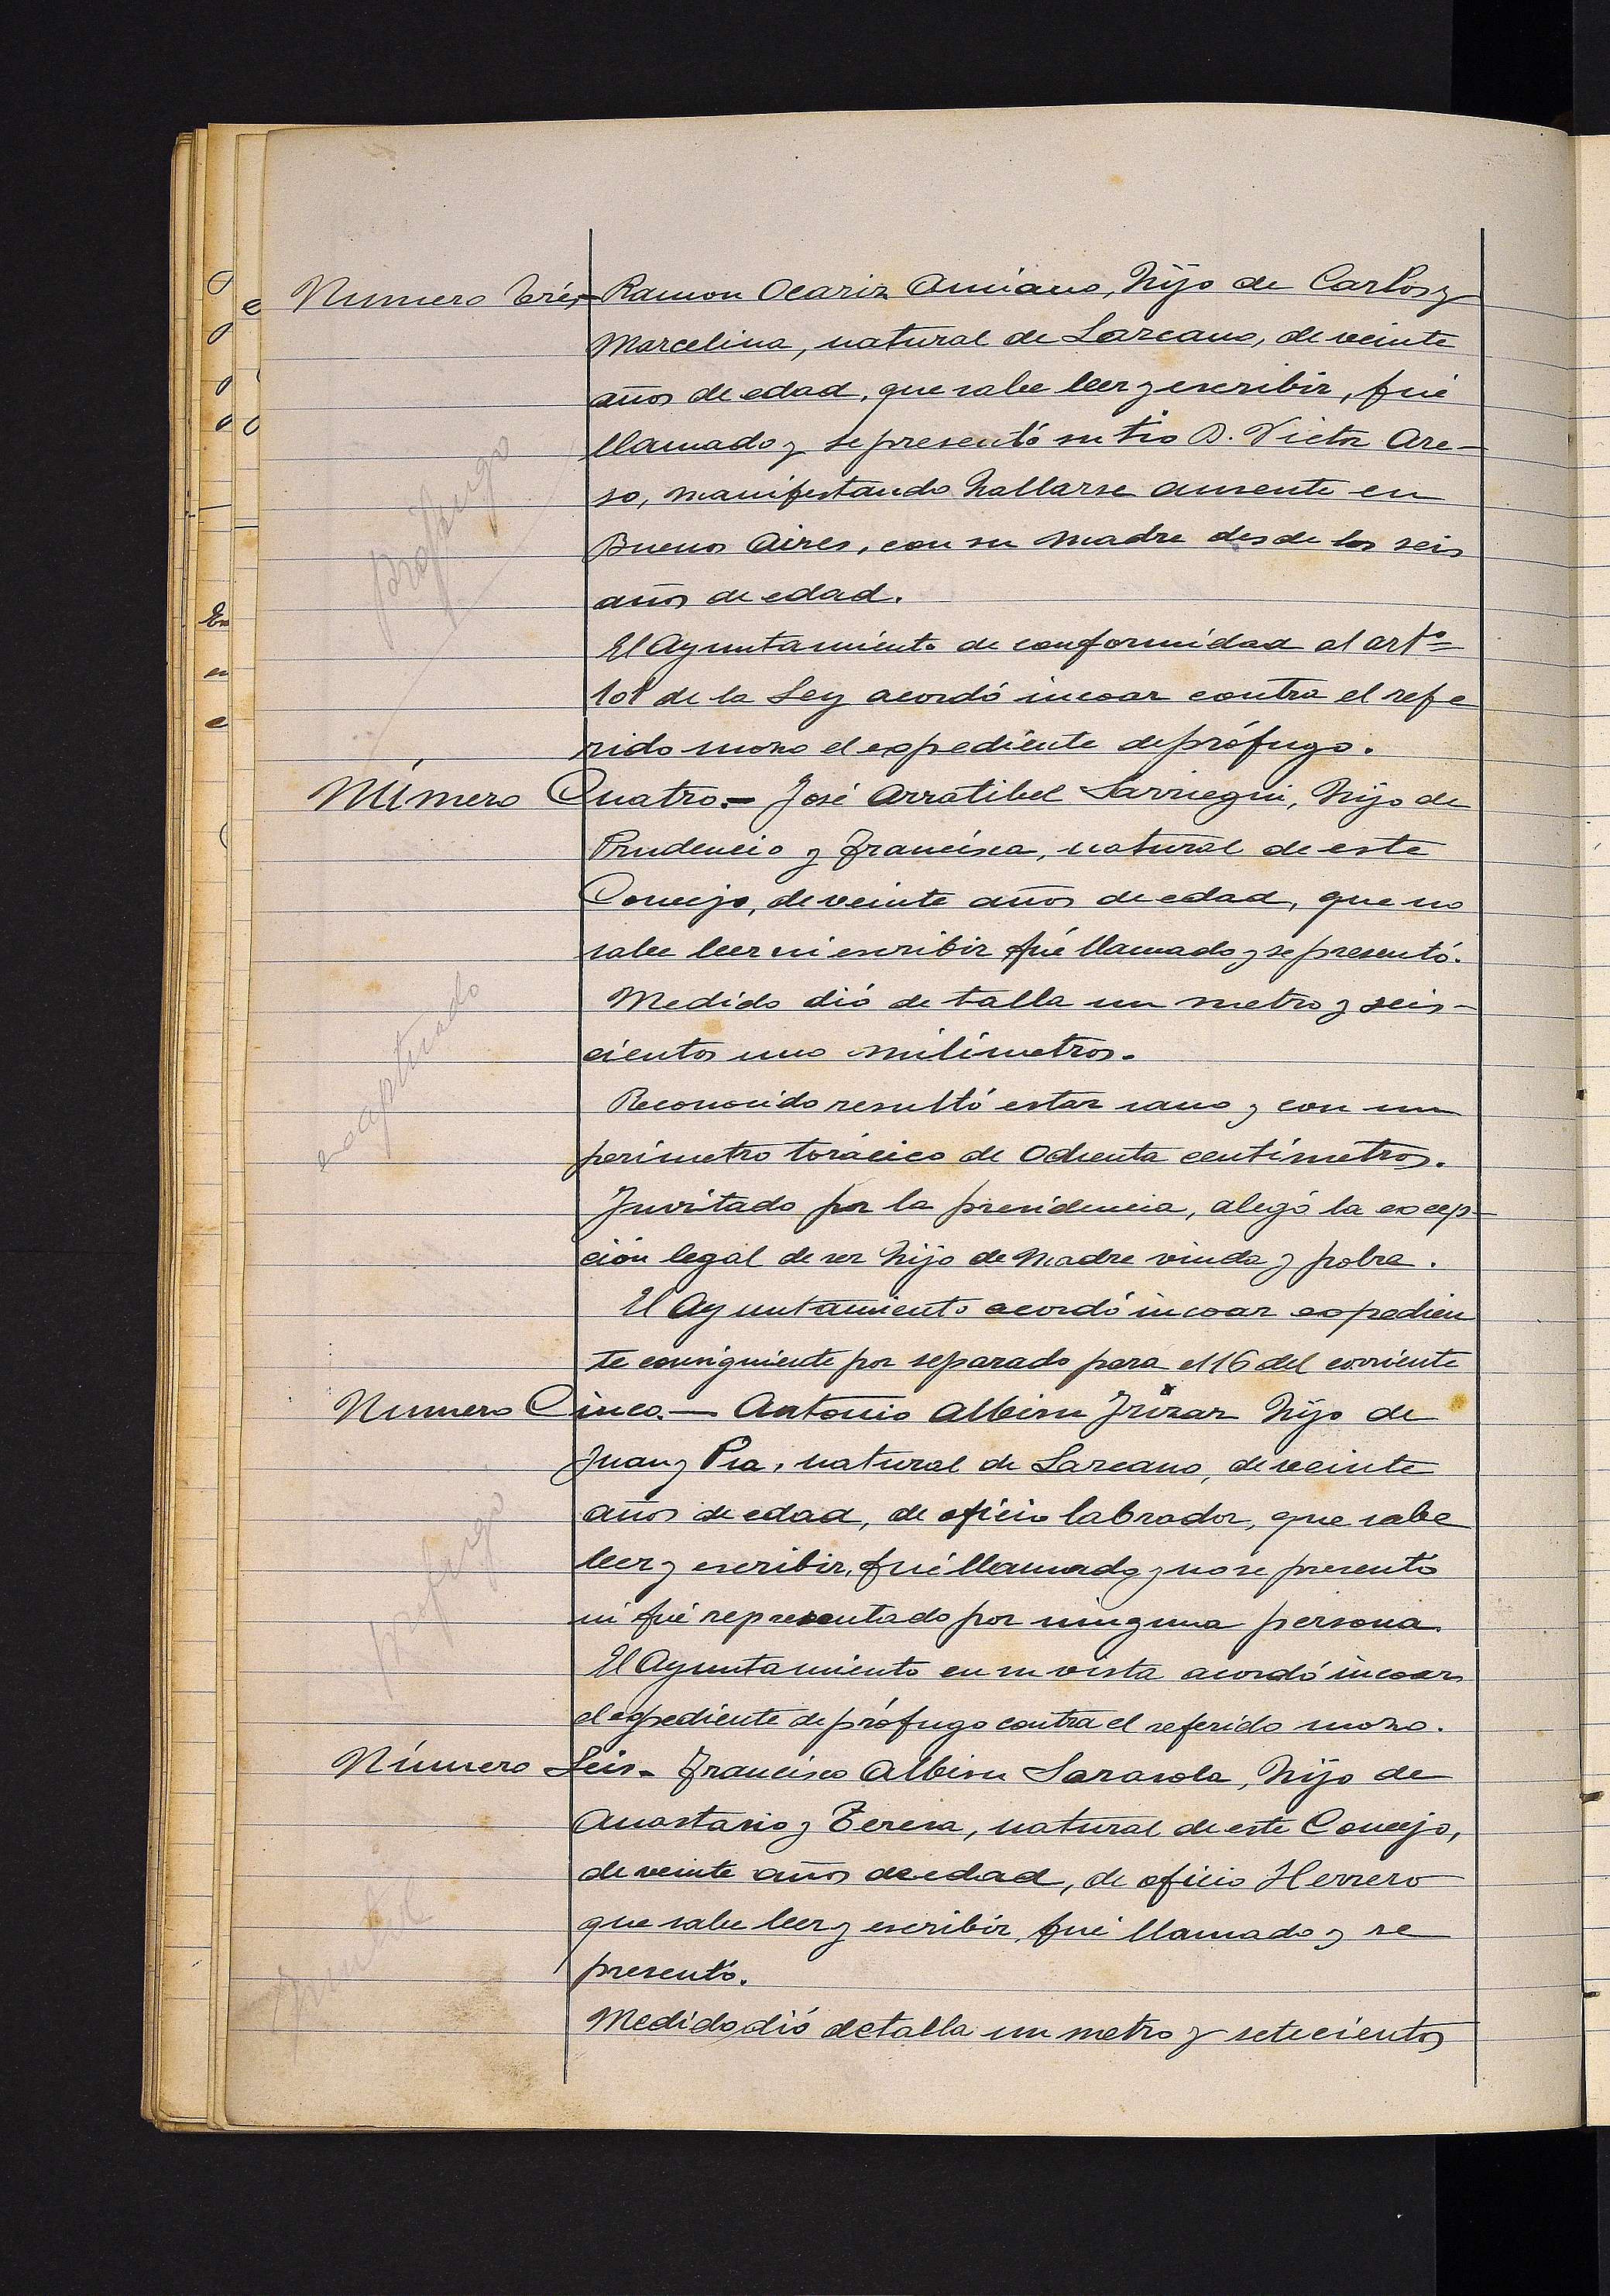 Numero trés- Ramon Ocariz Amiano, hijo de Carlos y
Marcelina, natural de Lazcano, de veinte
años de edad, que sabe leer y escribir, fué
llamado y se presentó su tio D. Victor Are-
so, manifestando hallarse ausente en
Buenos Aires, con su madre desde los seis
años de edad.
prófugo
El Ayuntamiento de conformidad al artº
101 de la Ley acordó incoar contra el refe
rido mozo el expediente de prófugo.
Número Cuatro.- José Arratibel Sarriegui, hijo de
Prudencio y Francisca, natural de este
Concejo, de veinte años de edad, que no
sabe leer ni escribir fué llamado y se presentó.
Medido dió de talla un metro y seis-
cientos uno milimetros.
Reconocido resultó estar sano y con un
perímetro torácico de Ochenta centímetros.
Invitado por la presidencia, alegó la excep-
ción legal de ser hijo de madre viuda y pobre.
El Ayuntamiento acordó incoar expedien
te consiguiente por separado para el 16 del corriente
Numero Cinco.- Antonio Albisu Irizar hijo de
Juan y Pia, natural de Lazcano, de veinte
años de edad, de oficio labrador, que sabe
leer y escribir, fué llamado y no se presentó
ni fué representado por ninguna persona.
prófugo
El Ayuntamiento en su vista acordó incoar
el expediente de prófugo contra el referido mozo.
Número Seis- Francisco Albisu Sarasola, hijo de
Anastasio y Teresa, natural de este Concejo,
de veinte años de edad, de oficio Herrero
que sabe leer y escribir, fué llamado y se
presentó.
Medido dió de talla un metro y setecientos